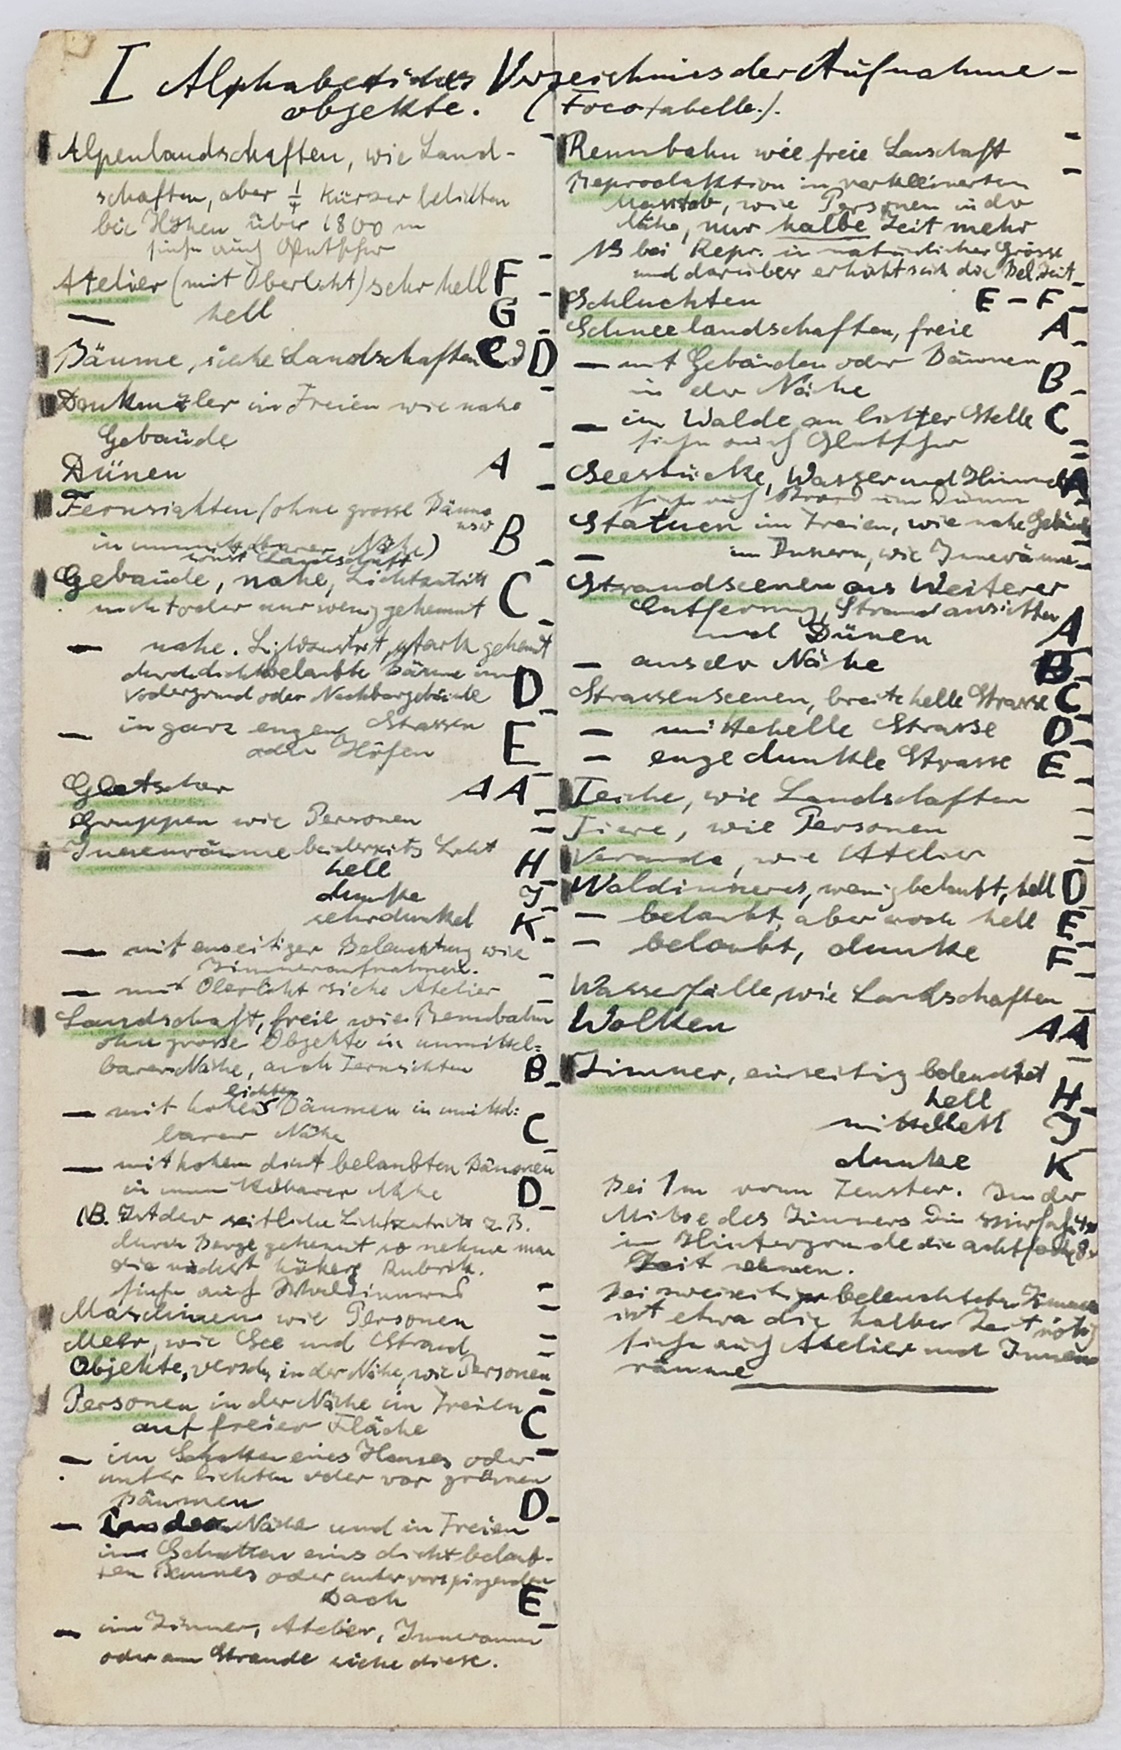 I Alphabetisches Verzeichnis der Aufnahme-
objekte. (Fototabelle).
Alpenlandschaften, wie Land-
schaften, aber 1/4 kürzer belichten
bei Höhen über 1800 m
siehe auch Gletscher
Atelier (mit Oberlicht) sehr hell F
— hell G
Bäume, siehe Landschaften C D
Denkmäler im Freien wie nahe
Gebäude
Dünen A
Fernsichten (ohne grosse Bäume
usw
in unmittelbarer Nähe) B
sonst Landschaft
Gebäude, nahe, Lichtzutritt
nicht oder nur wenig gehemmt C
— nahe. Lichtzutritt stark gehemt
durch dicht belaubte Bäume im
Vodergrund oder Nachbargebäude D
— in ganz engen Strassen
oder Höfen E
Gletscher AA
Gruppen wie Personen
Innenräume beiderseits Licht
hell H
dunke J
sehr dunkel K
— mit einseitiger Beleuchtung wie
Zimmeraufnahmen.
— mit Oberlicht siche Atelier
Landschaft, freie wie Rennbahn
ohne grosse Objekte in unmittel=
barer Nähe, auch Fernsichten B
lichten
— mit hohen Bäumen in unmittel:
barer Nähe C
— mit hohen dicht belaubten Bäumen
in unmittelbarer Nähe D
NB. Ist der seitliche Lichtzutritt z.B.
durch Berge gehemt so nehme man
die nächst höhere Rubrik.
siehe auch Waldinneres
Maschinen wie Personen
Meer, wie See und Strand
Objekte, versch, in der Nähe, wie Personen
Personen in der Nähe im Freien
auf freier Fläche C
— im Schatten eines Hauses oder
unter lichten oder vor grünen
Bäumen D
— In der Nähe und in Freien
im Schatten eins dicht belaub-
ten Baumes oder unter vorspringenden
Dach E
— im Zimmer, Atelier, Innenraum
oder am Strande siche diese.
Rennbahn wie freie Lanschaft
Reproduktion in verkleinerten
Masstab, wie Personen in der
Nähe, nur halbe Zeit mehr
NB bei Repr. in natürlicher Grösse
und darüber erhöht sich die Bel. Zeit
Schluchten E - F
Schneelandschaften, freie A
— mit Gebäuden oder Bäumen
in der Nähe B
— im Walde an lichter Stelle C
siehe auch Gletscher
Seestücke, Wasser und Himmel A
siehe auch Strand und Dünen
Statuen im Freien, wie nahe Gebäude
— im Innern, wie Innenräume
Strandscenen aus Weiterer
Entfernung, Strandansichten
und Dünen A
— aus der Nähe B
Strassenscenen, breite helle Strasse C
— mittehelle Strasse D
— enge dunkle Strasse E
Teiche, wie Landschaften
Tiere, wie Personen
Veranda, wie Atelier
Waldinneres, wenig belaubt, hell D
— belaubt, aber noch hell E
— belaubt, dunke F
Wasserfälle, wie Landschaften
Wolken AA
Zimmer, einseitig beleuchtet
hell H
mittelhell J
dunke K
Bei 1m vom Fenster. In der
Mitte des Zimmers die vierfach 4x
im Hintergrunde die achtfach 8x
Zeit nehmen.
Bei zweiseitig beleuchteten Zimmern
ist etwa die halbe Zeit nötig
siehe auch Atelier und Innen
räume